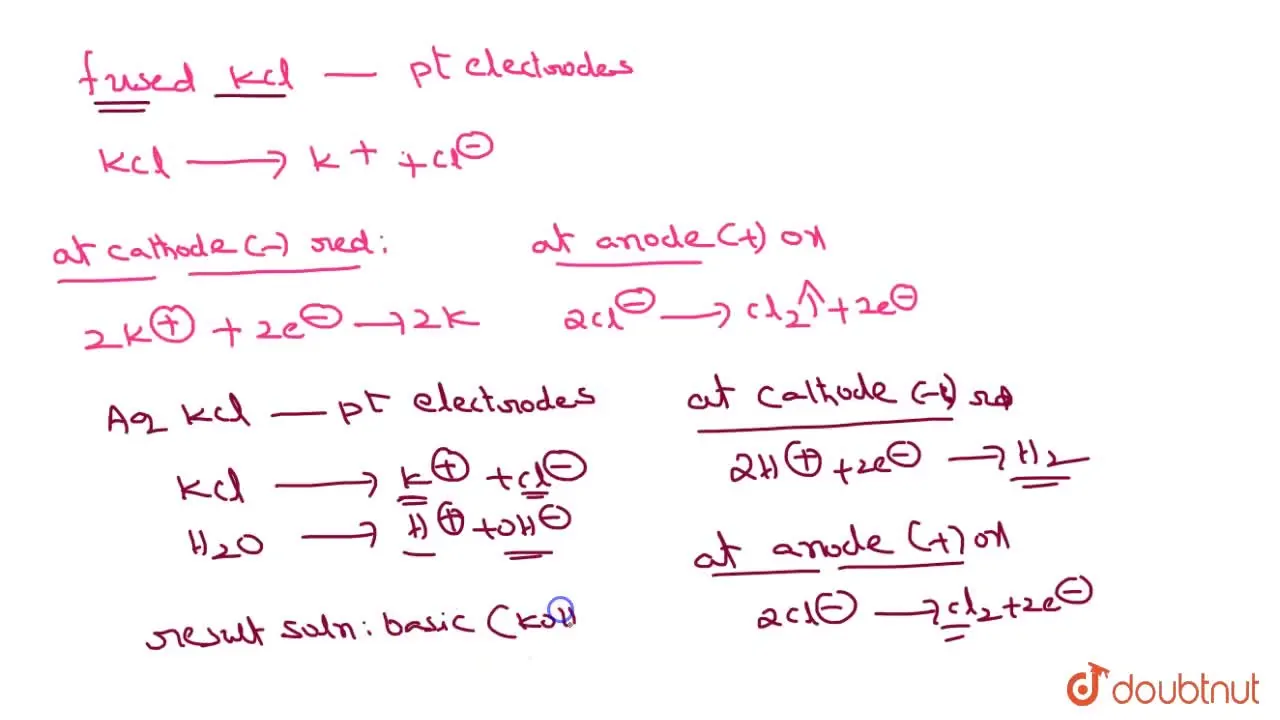 fused kcl — pt electrodes
kcl ⟶ k+ + cl⊖
at cathode (-) red:
2k⊕ + 2e⊖ ⟶ 2k
at anode (+) ox
2cl⊖ ⟶ cl₂↑ + 2e⊖
Aq kcl — pt electrodes
kcl ⟶ k⊕ + cl⊖
H₂O ⟶ H⊕ + OH⊖
result soln: basic (KOH
at cathode (-) red
2H⊕ + 2e⊖ ⟶ H₂
at anode (+) ox
2cl⊖ ⟶ cl₂ + 2e⊖
doubtnut